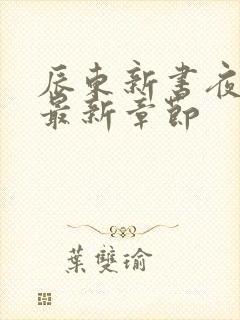 辰東新書夜
最新章節
葉雙瑜